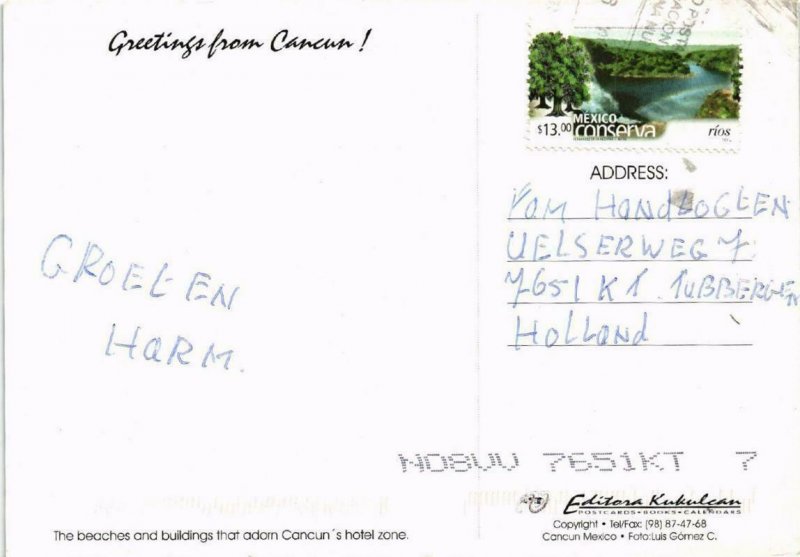 Greetings from Cancun!
MÉXICO
$13.00 conserva ríos
ADDRESS:
HANDLOGTEN
UELSERWEG 7
7651 KT TUBBERGEN
HOLLAND
GROETEN
HARM.
7651KT 7
Editora Kukulcan
POSTCARDS • BOOKS • CALENDARS
Copyright • Tel/Fax: (98) 87-47-68
Cancun Mexico • Foto:Luis Gómez C.
The beaches and buildings that adorn Cancun´s hotel zone.